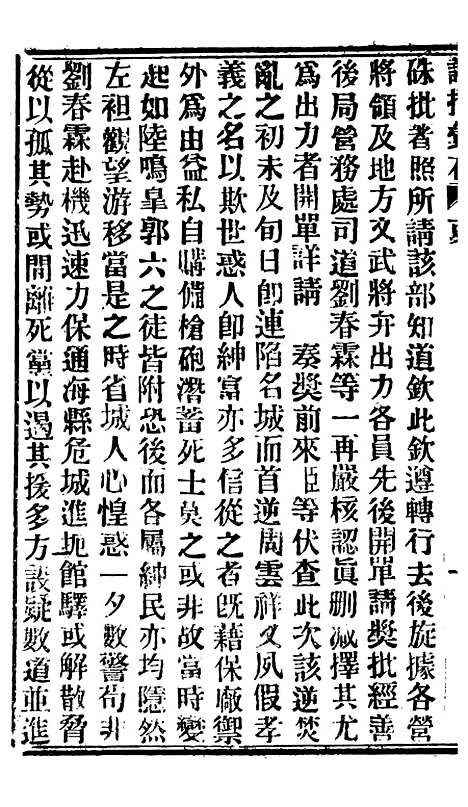 硃批著照所請該部知道欽此欽遵轉行去後旋據各營
將領及地方文武將弁出力各員先後開單請獎批經善
後局營務處司道劉春霖等一再嚴核認眞刪減擇其尤
爲出力者開單詳請 奏獎前來臣等伏查此次該逆焚
亂之初未及旬日卽連陷名城而首逆周雲祥又夙假孝
義之名以欺世惑人卽紳富亦多信從之者旣藉保廠禦
外爲由益私自購備槍砲潛蓄死士莫之或非故當時變
起如陸鳴皇郭六之徒皆附恐後而各屬紳民亦均隱然
左袒觀望游移當是之時省城人心惶惑一夕數警茍非
劉春霖赴機迅速力保通海縣危城進扼館驛或解散脅
從以孤其勢或間離死黨以遏其援多方設疑數道並進